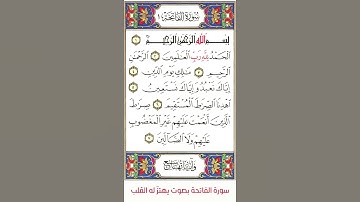 سورة الفاتحة ١
بِسْمِ اللَّهِ الرَّحْمَٰنِ الرَّحِيمِ ١
الْحَمْدُ لِلَّهِ رَبِّ الْعَالَمِينَ ٢ الرَّحْمَٰنِ
الرَّحِيمِ ٣ مَالِكِ يَوْمِ الدِّينِ ٤
إِيَّاكَ نَعْبُدُ وَإِيَّاكَ نَسْتَعِينُ ٥
اهْدِنَا الصِّرَاطَ الْمُسْتَقِيمَ ٦ صِرَاطَ
الَّذِينَ أَنْعَمْتَ عَلَيْهِمْ غَيْرِ الْمَغْضُوبِ
عَلَيْهِمْ وَلَا الضَّالِّينَ ٧
سورة الفاتحة بصوت يهتز له القلب